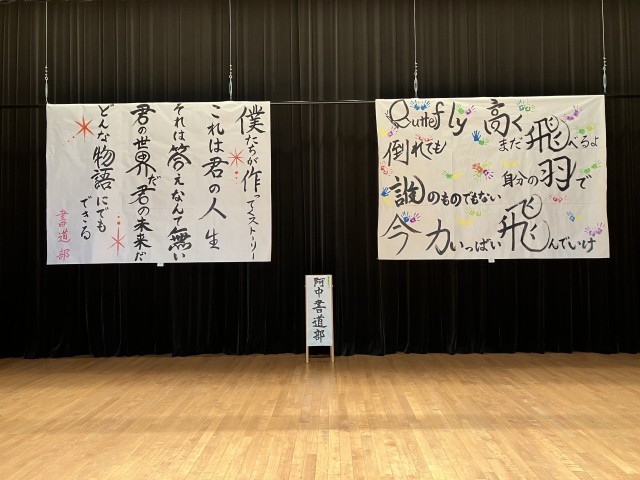 僕たちが作ってくストーリー
これは君の人生
それは答えなんて無い
君の世界だ君の未来だ
どんな物語にでも
できる
書道部
Butterfly 高く
まだ飛べるよ
倒れても
自分の羽で
誰のものでもない
今 力いっぱい飛んでいけ
阿中書道部